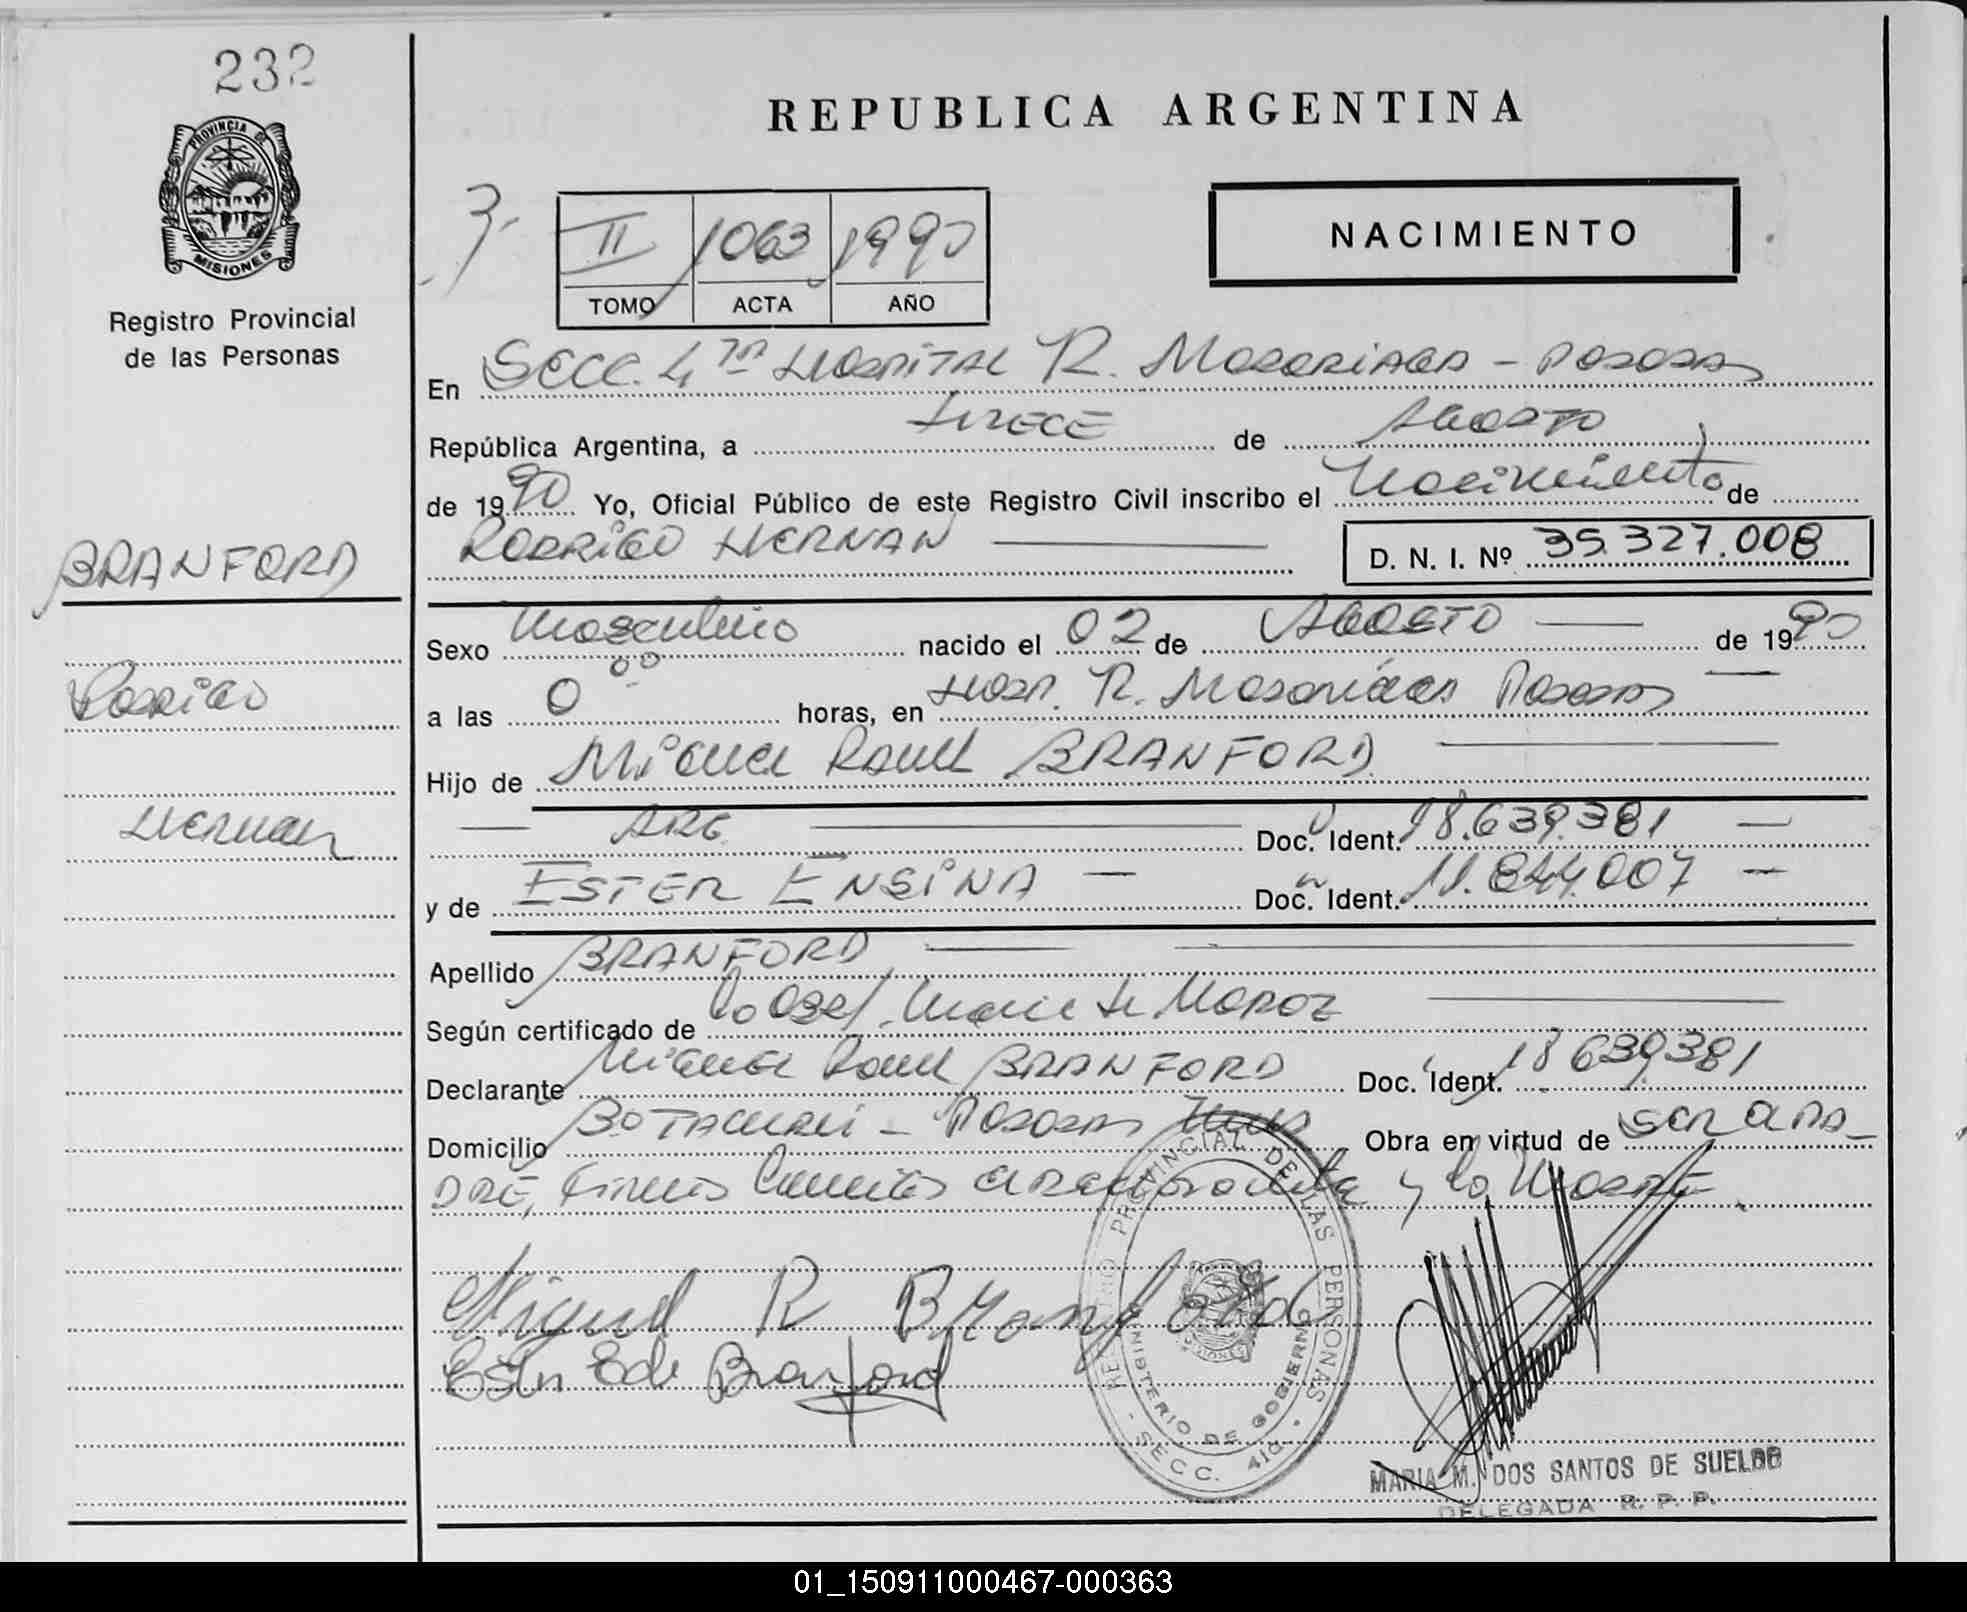 232
PROVINCIA DE
MISIONES
Registro Provincial
de las Personas
BRANFORD
Rodrigo
Hernan
REPUBLICA ARGENTINA
NACIMIENTO
II 1063 1990
TOMO ACTA AÑO
En SECC. 4ta HOSPITAL R. Madariaga - Posadas
República Argentina, a trece de Agosto
de 1990 Yo, Oficial Público de este Registro Civil inscribo el Nacimiento de
RODRIGO HERNAN
D. N. I. Nº 35.327.008
Sexo Masculino nacido el 02 de AGOSTO de 1990
a las 0 00 horas, en Hosp. R. Madariaga Posadas
Hijo de Miguel Raul BRANFORD
ARG. Doc. Ident. 18.639.381
y de ESTER ENSINA Doc. Ident. 11.844.007
Apellido BRANFORD
Según certificado de la Obst. Maria
Declarante Miguel Raul BRANFORD Doc. Ident. 18639381
Domicilio Posadas Mnes Obra en virtud de ser el pa-
dre, firma y la Madre
Miguel R Branford
Ester E de Branford
REGISTRO PROVINCIAL DE LAS PERSONAS
MINISTERIO DE GOBIERNO
SECC. 4ta
MARIA M. DOS SANTOS DE SUELDO
DELEGADA R. P. P.
01_150911000467-000363